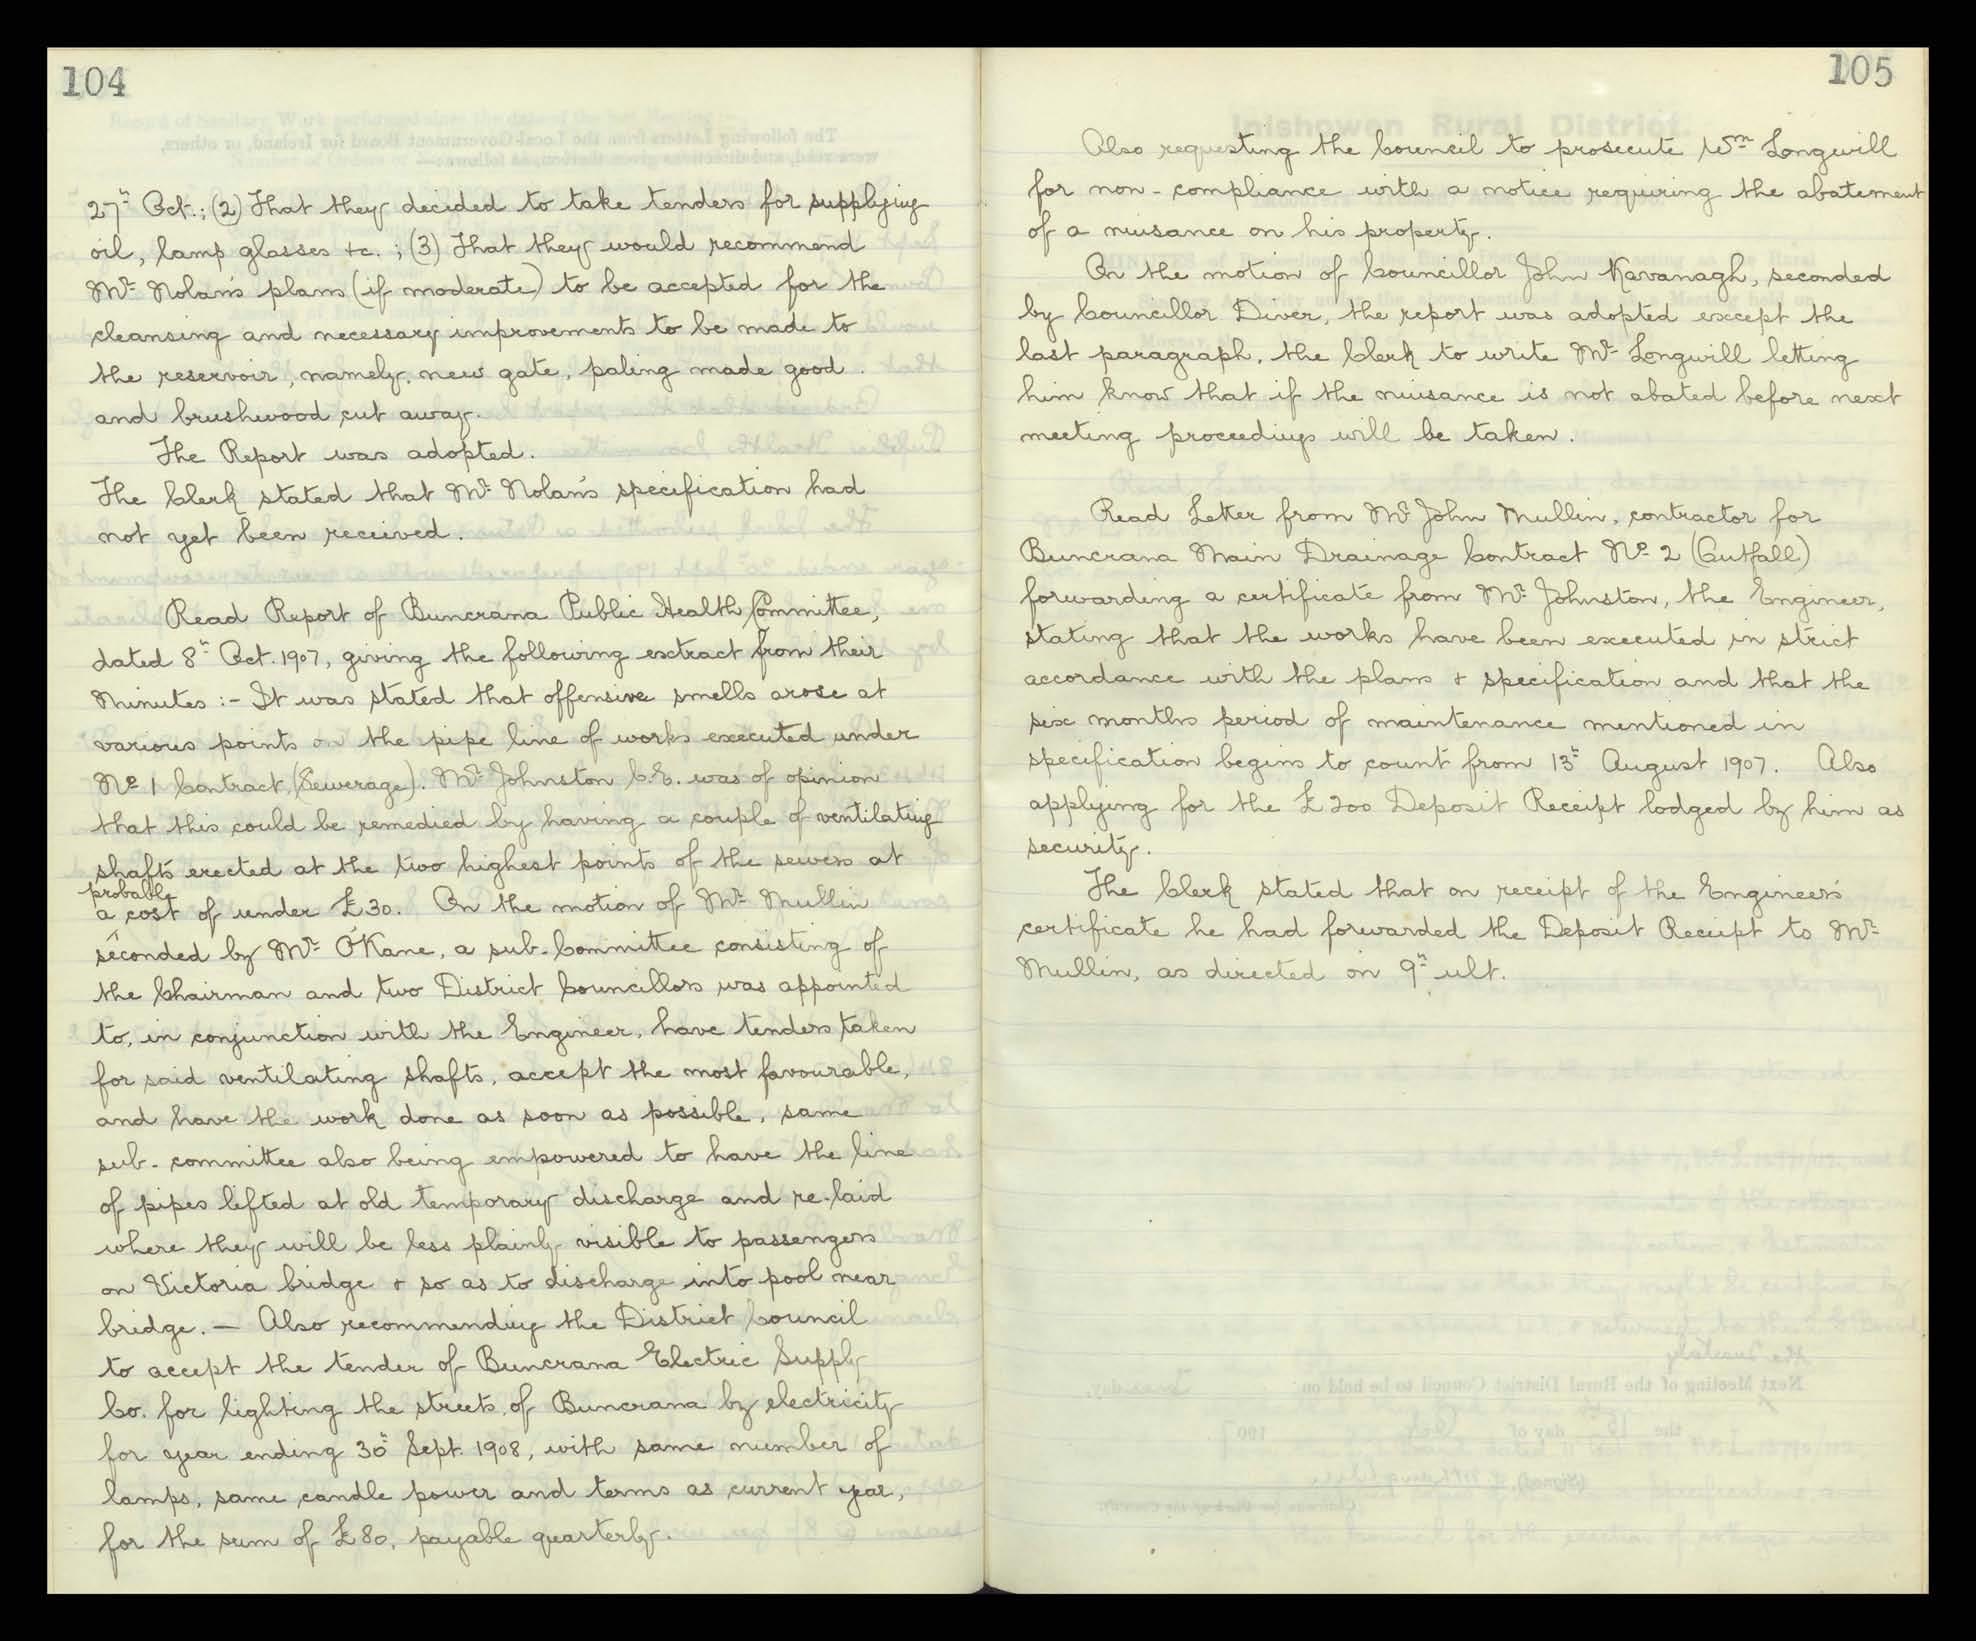 104
27th Oct.; (2) That they decided to take tenders for supplying
oil, lamp glasses &c.; (3) That they would recommend
Mr. Nolan's plans (if moderate) to be accepted for the
cleansing and necessary improvements to be made to
the reservoir, namely, new gate, paling made good
and brushwood cut away.
The Report was adopted.
The Clerk stated that Mr. Nolan's specification had
not yet been received.
Read Report of Buncrana Public Health Committee,
dated 8th Oct. 1907, giving the following extract from their
Minutes :- It was stated that offensive smells arose at
various points on the pipe line of works executed under
No. 1 Contract, (Sewerage). Mr. Johnston C.E. was of opinion
that this could be remedied by having a couple of ventilating
shafts erected at the two highest points of the sewers at
probable
a cost of under £30. On the motion of Mr. Mullin
seconded by Mr. O'Kane, a sub-Committee consisting of
the Chairman and two District Councillors was appointed
to, in conjunction with the Engineer, have tenders taken
for said ventilating shafts, accept the most favourable,
and have the work done as soon as possible, same
sub-committee also being empowered to have the line
of pipes lifted at old temporary discharge and re-laid
where they will be less plainly visible to passengers
on Victoria bridge & so as to discharge into pool near
bridge. — Also recommending the District Council
to accept the tender of Buncrana Electric Supply
Co. for lighting the streets of Buncrana by electricity
for year ending 30th Sept. 1908, with same number of
lamps, same candle power and terms as current year,
for the sum of £80, payable quarterly.
105
Also requesting the Council to prosecute Wm. Longwill
for non-compliance with a notice requiring the abatement
of a nuisance on his property.
On the motion of Councillor John Kavanagh, seconded
by Councillor Diver, the report was adopted except the
last paragraph, the Clerk to write Mr. Longwill letting
him know that if the nuisance is not abated before next
meeting proceedings will be taken.
Read Letter from Mr. John Mullin, contractor for
Buncrana Main Drainage Contract No. 2 (Outfall)
forwarding a certificate from Mr. Johnston, the Engineer,
stating that the works have been executed in strict
accordance with the plans & specification and that the
six months period of maintenance mentioned in
specification begins to count from 13th August 1907. Also
applying for the £200 Deposit Receipt lodged by him as
security.
The Clerk stated that on receipt of the Engineer's
certificate he had forwarded the Deposit Receipt to Mr.
Mullin, as directed on 9th ult.